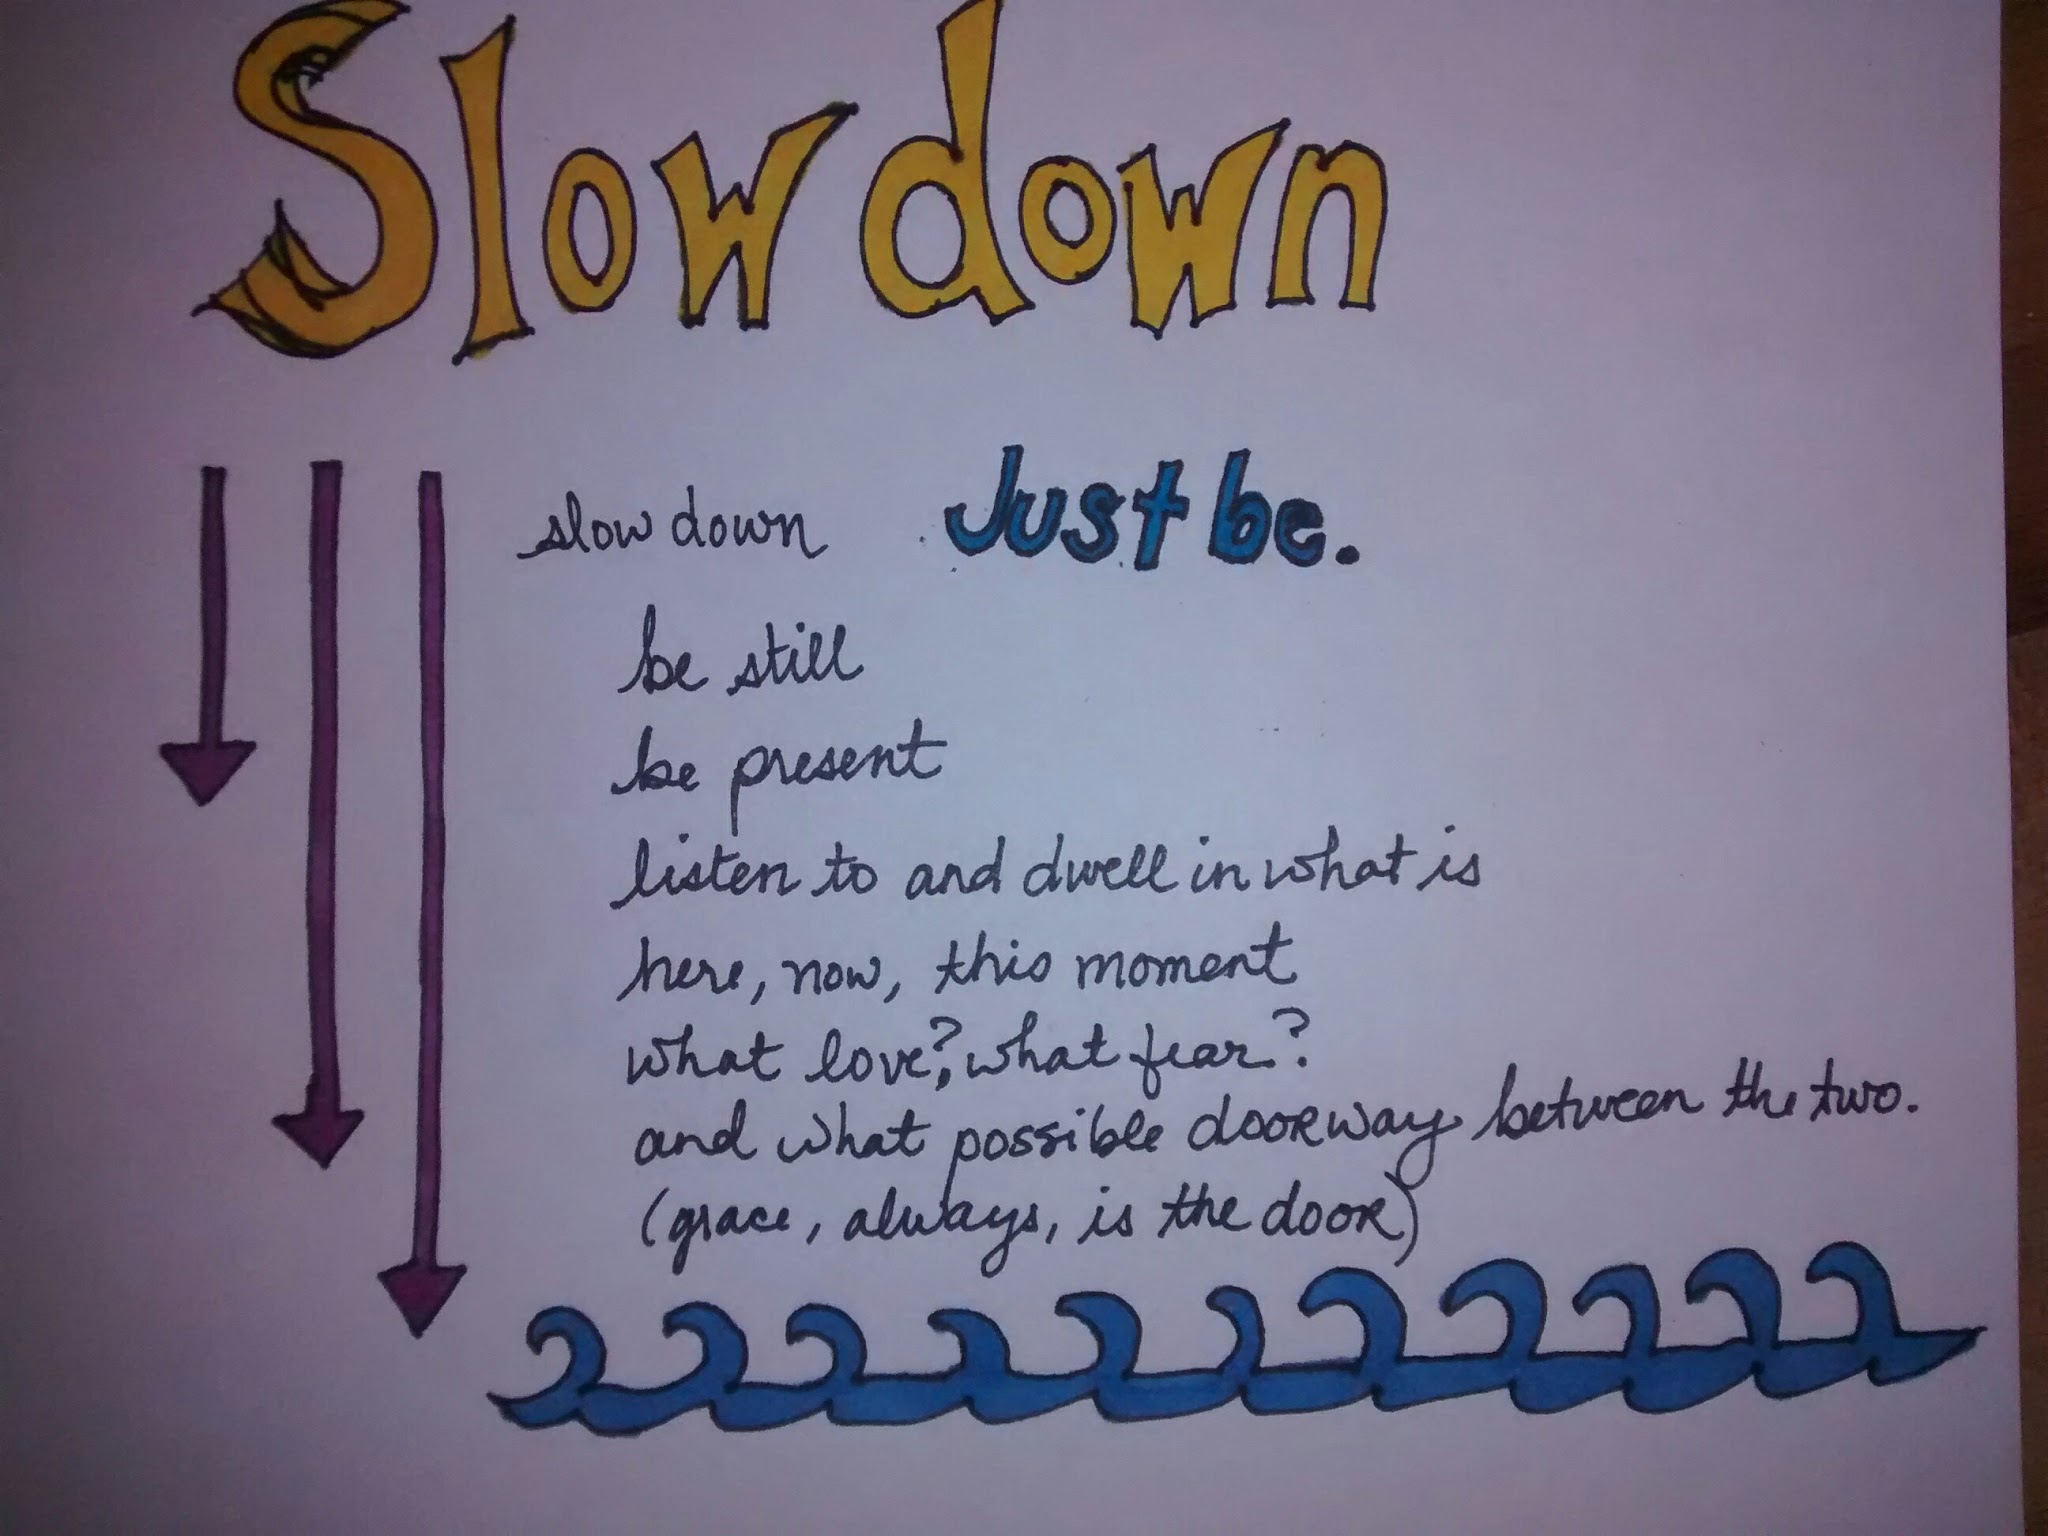 Slow down
slow down Just be.
be still
be present
listen to and dwell in what is
here, now, this moment
what love?, what fear?
and what possible doorway between the two.
(grace, always, is the door)